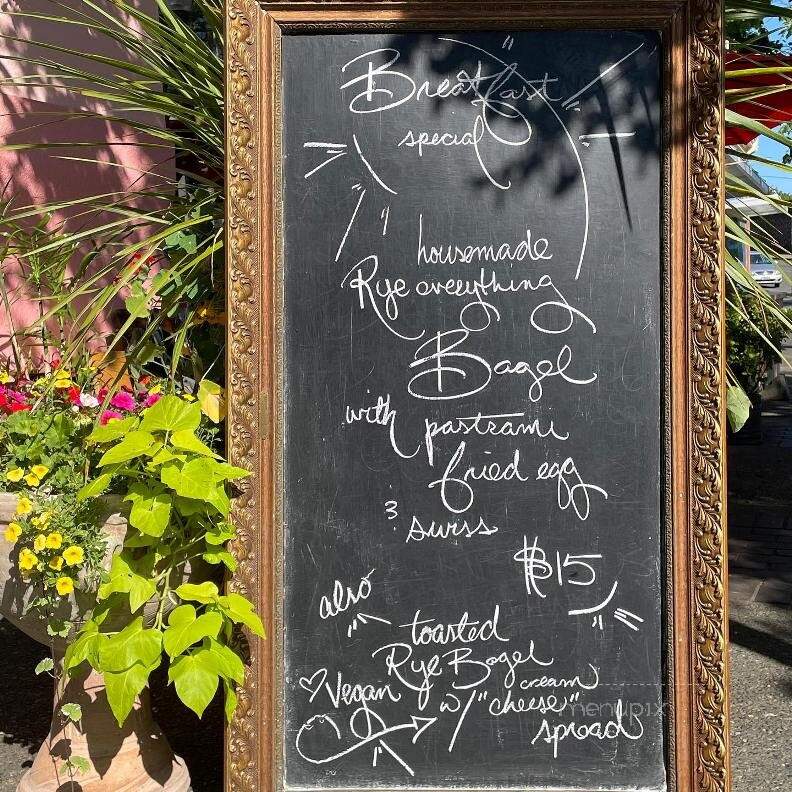 Breakfast
special
housemade
Rye everything
Bagel
with pastrami
fried egg
& swiss
$15
also
toasted
Rye Bagel
♡Vegan w/ "cream cheese"
spread
menupix